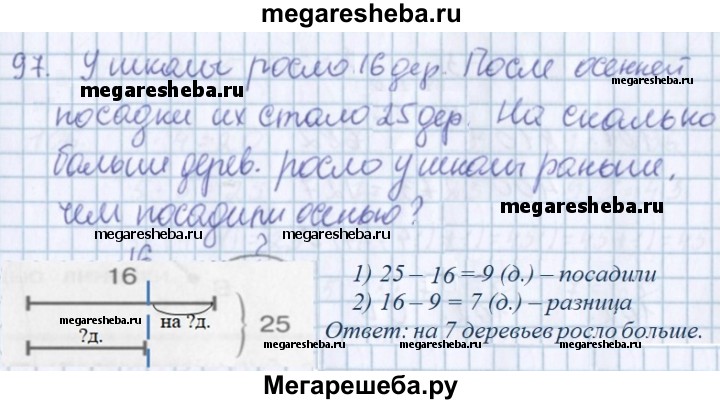 megaresheba.ru
97. У школы росло 16 дер. После осенней
megaresheba.ru
посадки их стало 25 дер. На сколько
больше дерев. росло у школы раньше,
megaresheba.ru
чем посадили осенью?
megaresheba.ru
16 ?
16
1) 25 – 16 = 9 (д.) – посадили
2) 16 – 9 = 7 (д.) – разница
megaresheba.ru
?д. на ?д. 25
Ответ: на 7 деревьев росло больше.
megaresheba.ru
megaresheba.ru
Мегарешеба.ру